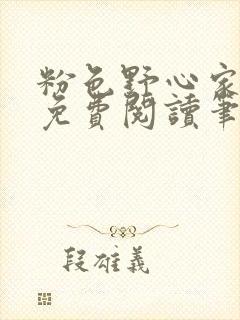 粉色野心家
免費閱讀筆
段雄義